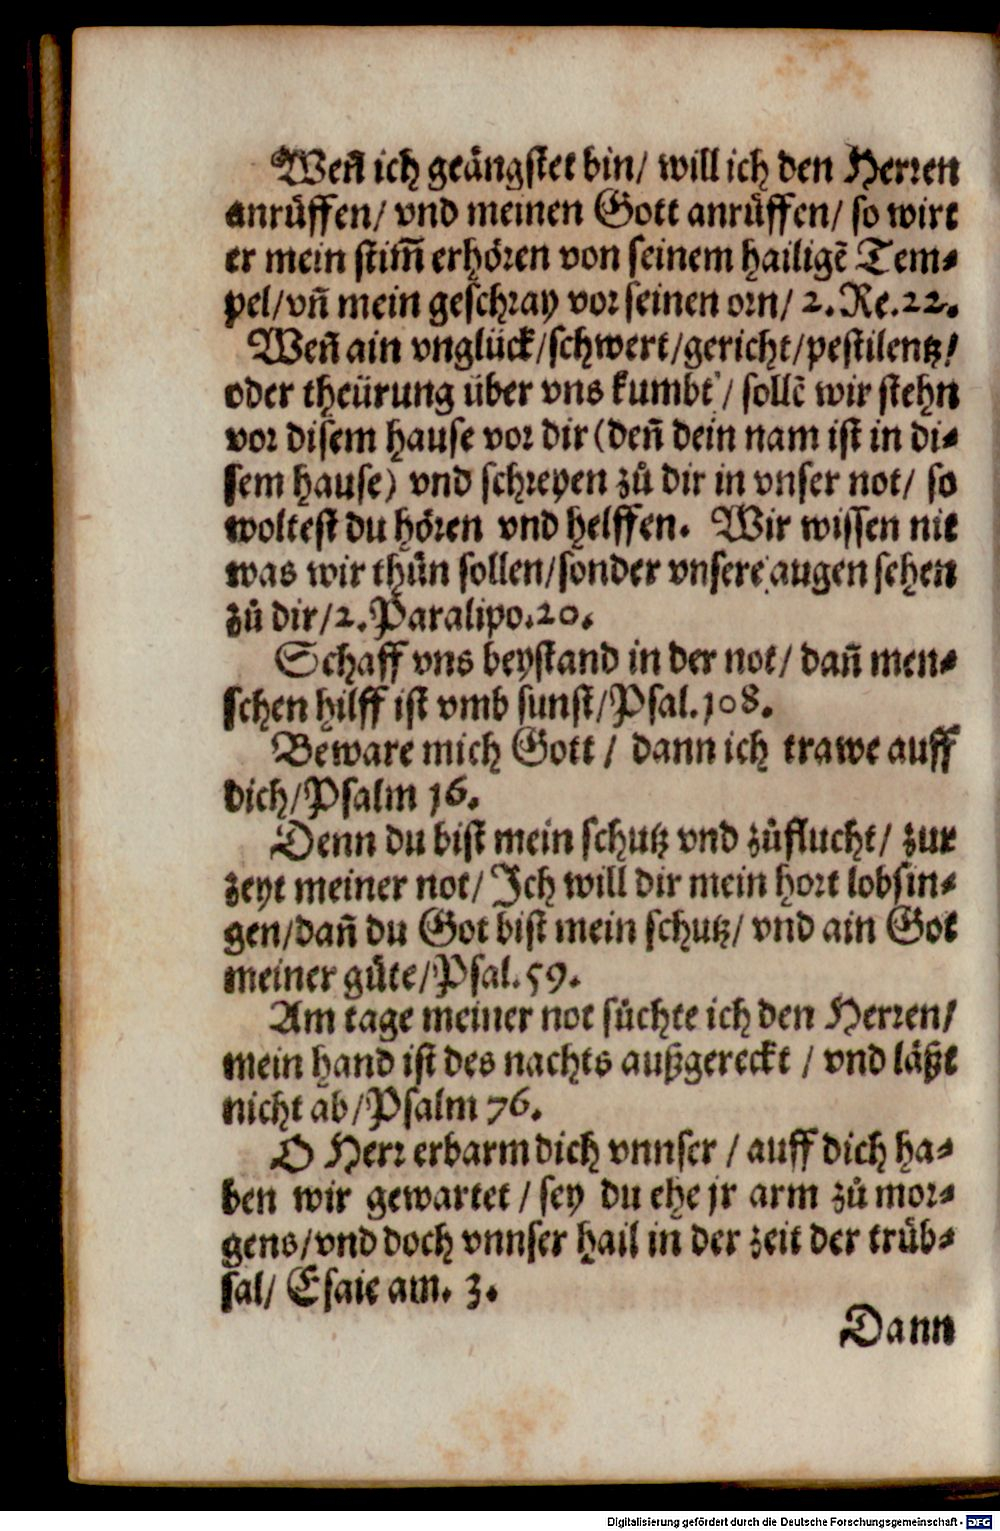 Weñ ich geängstet bin/ will ich den Herꝛen
anrüffen/ vnd meinen Gott anrüffen/ so wirt
er mein stim̃ erhöꝛen von seinem hailigẽ Tem⸗
pel/vñ mein geschꝛay voꝛ seinen oꝛn/ 2. Re. 22.
Weñ ain vnglück/schwert/gericht/pestilentz/
oder theürung über vns kumbt/ sollẽ wir stehn
voꝛ disem hause voꝛ dir (deñ dein nam ist in di⸗
sem hause) vnd schꝛeyen zů dir in vnser not/ so
woltest du höꝛen vnd helffen. Wir wissen nit
was wir thůn sollen/sonder vnsere augen sehen
zů dir/2. Paralipo.20.
Schaff vns beystand in der not/ dañ men⸗
schen hilff ist vmb sunst/Psal.108.
Beware mich Gott / dann ich trawe auff
dich/Psalm 16.
Denn du bist mein schutz vnd zůflucht/ zur
zeyt meiner not/ Ich will dir mein hoꝛt lobsin⸗
gen/dañ du Got bist mein schutz/ vnd ain Got
meiner güte/Psal.59.
Am tage meiner not sůchte ich den Herꝛen/
mein hand ist des nachts außgereckt / vnd läßt
nicht ab/Psalm 76.
O Herꝛ erbarm dich vnnser / auff dich ha⸗
ben wir gewartet / sey du ehe jr arm zů moꝛ⸗
gens/vnd doch vnnser hail in der zeit der trüb⸗
sal/ Esaie am. 3.
Dann
Digitalisierung gefördert durch die Deutsche Forschungsgemeinschaft - DFG